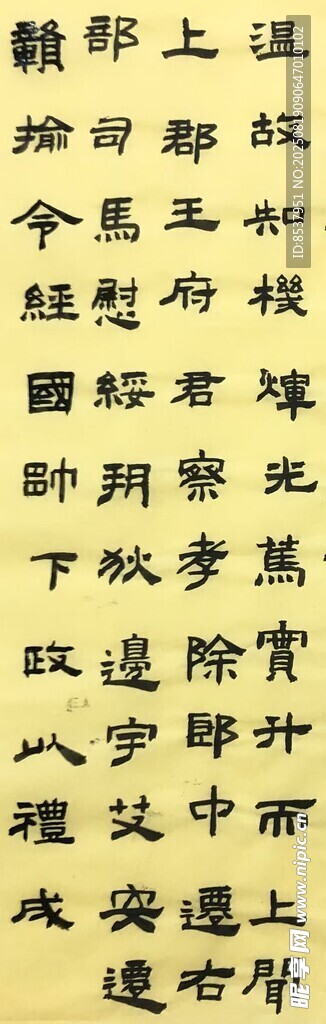 温故知機煇光篤實升而上聞
上郡王府君察孝除郎中遷右
部司馬慰綏朔狄邊宇艾安遷
贛揄令經國帥下政以禮成
ID:8537951 NO:20250819090647010102
昵享网 www.nipic.cn